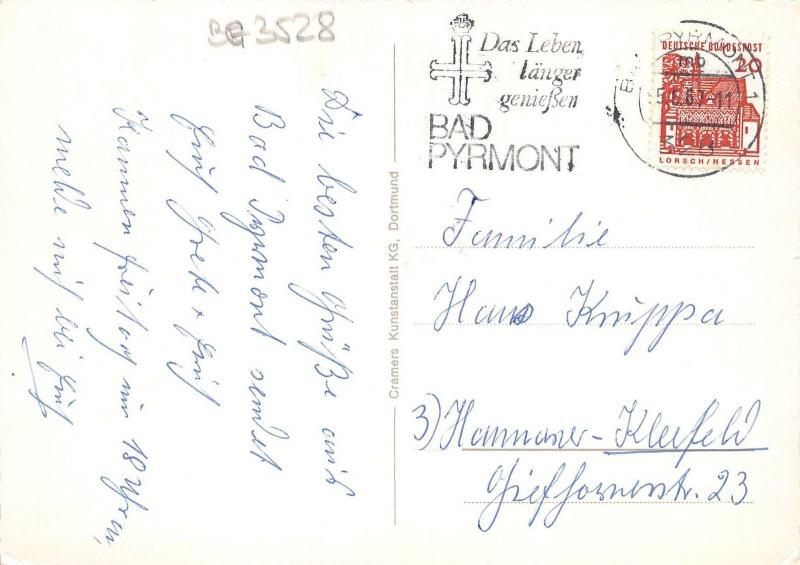 BG 3528
Die besten Grüße aus
Bad Pyrmont sendet
Euch Grete +
Kommen freitag um 18 Uhr,
melde mich bei Euch
Das Leben
länger
genießen
BAD
PYRMONT
PYRMONT 1
DEUTSCHE BUNDESPOST
20
LORSCH/HESSEN
Cramers Kunstanstalt KG, Dortmund
Familie
Hans Kruppa
3) Hannover-Kleefeld
Gifhornerstr. 23